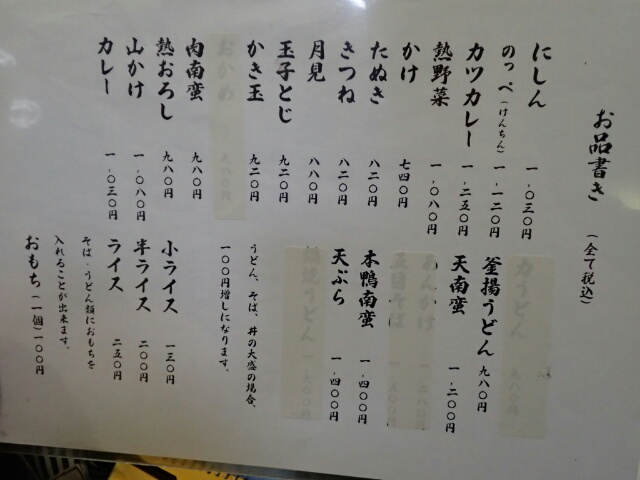 お品書き (全て税込)
にしん 一、〇三〇円
のっぺ(けんちん) 一、一二〇円
カツカレー 一、二五〇円
熱野菜 一、〇八〇円
かけ 七四〇円
たぬき 八二〇円
きつね 八二〇円
月見 八八〇円
玉子とじ 九二〇円
かき玉 九二〇円
おかめ 九八〇円
肉南蛮 九八〇円
熱おろし 九八〇円
山かけ 一、〇八〇円
カレー 一、〇三〇円
力うどん 九八〇円
釜揚うどん 九八〇円
天南蛮 一、二〇〇円
あんかけ
五目そば
本鴨南蛮 一、四〇〇円
天ぷら 一、四〇〇円
うどん、そば、丼の大盛の場合、
一〇〇円増しになります。
小ライス 一三〇円
半ライス 二〇〇円
ライス 二五〇円
そば・うどん類におもちを
入れることが出来ます。
おもち(一個)一〇〇円